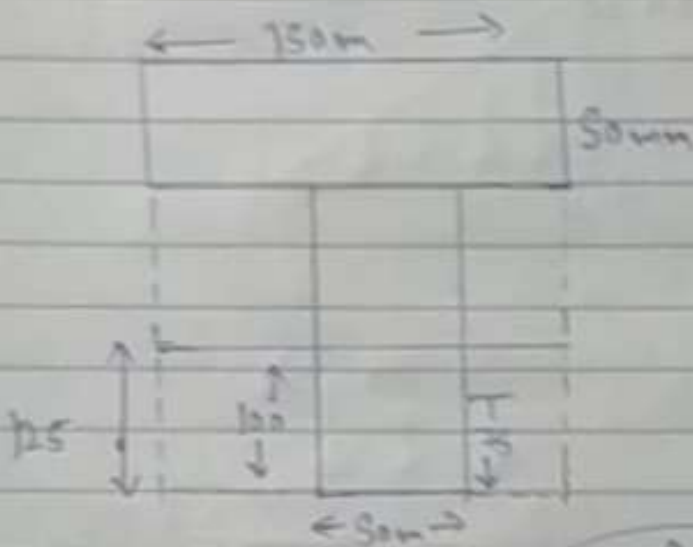 150m
50mm
125
100
50m